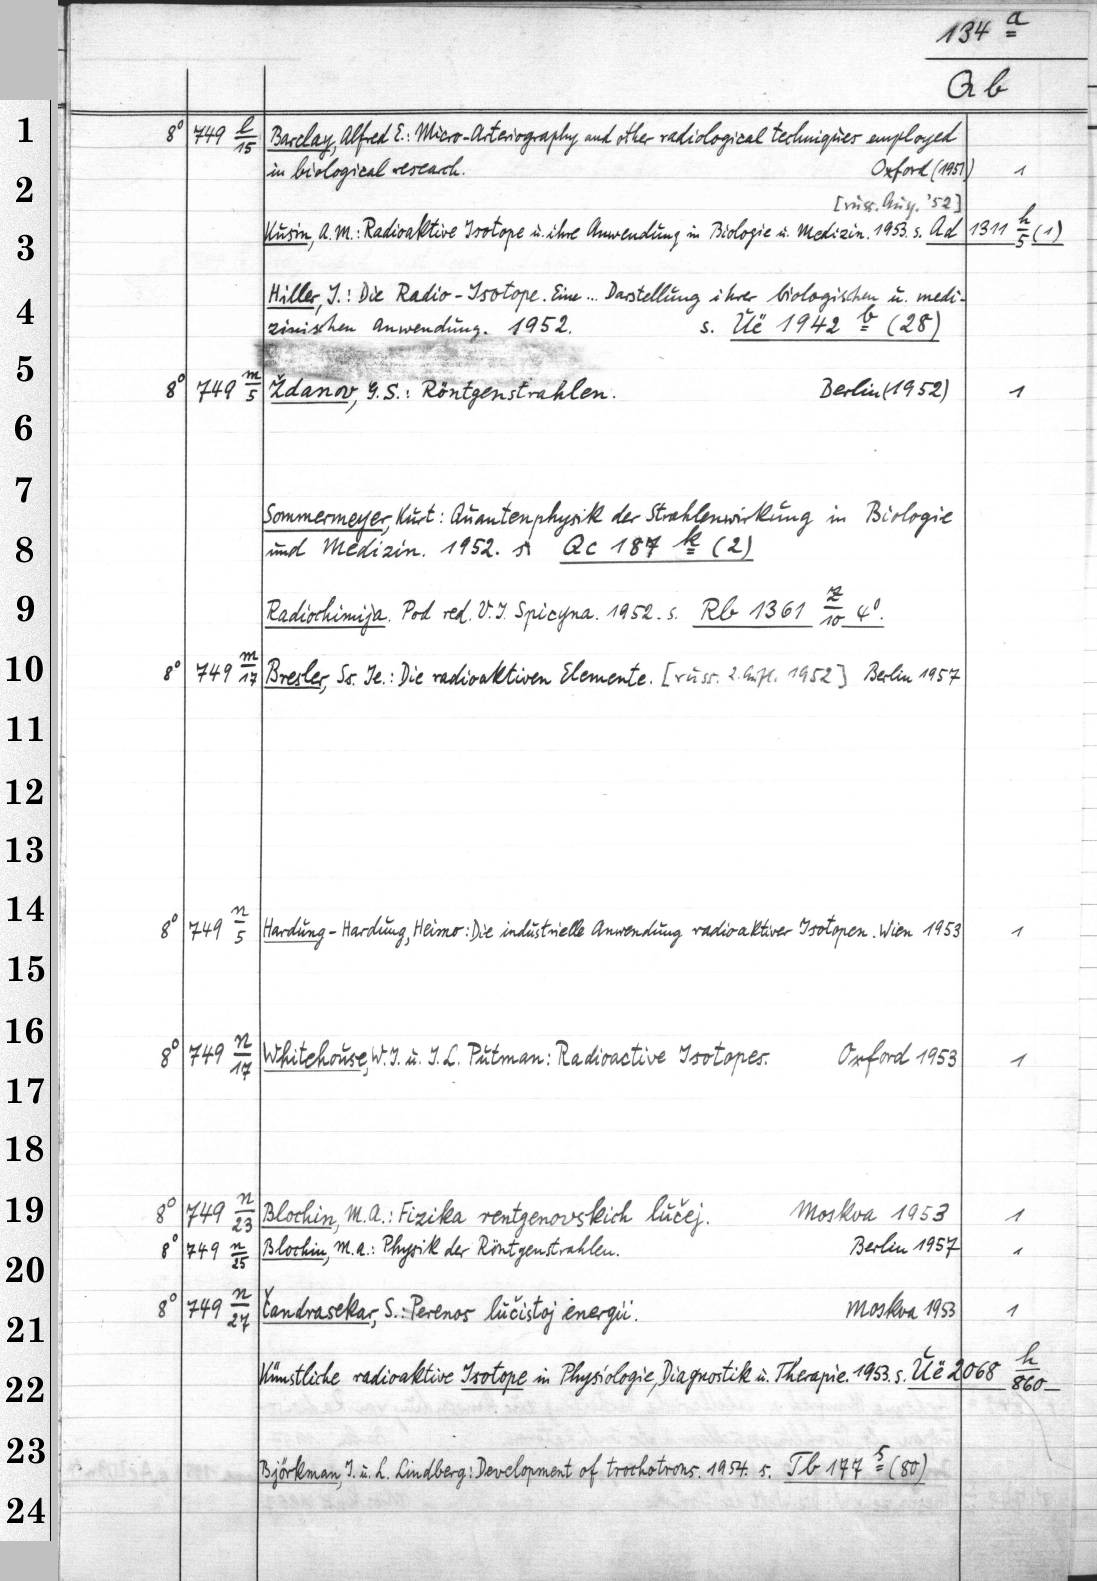 134 a
Qb
1
8° 749 l/15 Barclay, Alfred E.: Micro-Arteriography and other radiological techniques employed
2
in biological research. Oxford (1951) 1
[russ. Ausg. '52]
3
Kusin, A.M.: Radioaktive Isotope u. ihre Anwendung in Biologie u. Medizin. 1953. s. Ad 1311 h/5 (1)
4
Hiller, J.: Die Radio-Isotope. Eine ... Darstellung ihrer biologischen u. medi-
zinischen Anwendung. 1952. s. Üë 1942 b (28)
5
8° 749 m/5 Ždanov, G.S.: Röntgenstrahlen. Berlin (1952) 1
6
7
Sommermeyer, Kurt: Quantenphysik der Strahlenwirkung in Biologie
8
und Medizin. 1952. s. Qc 187 k (2)
9
Radiochimija. Pod red. V.I. Spicyna. 1952. s. Rb 1361 z/10 4°.
10
8° 749 m/17 Bresler, Ss. Je.: Die radioaktiven Elemente. [russ. 2. Aufl. 1952] Berlin 1957
11
12
13
14
8° 749 n/5 Hardung-Hardung, Heimo: Die industrielle Anwendung radioaktiver Isotopen. Wien 1953 1
15
16
8° 749 n/17 Whitehouse, W.J. u. J.L. Putman: Radioactive Isotopes. Oxford 1953 1
17
18
19
8° 749 n/23 Blochin, M.A.: Fizika rentgenovskich lučej. Moskva 1953 1
20
8° 749 n/25 Blochin, M.A.: Physik der Röntgenstrahlen. Berlin 1957 1
21
8° 749 n/27 Čandrasekar, S.: Perenos lučistoj ėnergii. Moskva 1953 1
22
Künstliche radioaktive Isotope in Physiologie, Diagnostik u. Therapie. 1953. s. Üë 2068 h/860
23
Björkman, J. u. L. Lindberg: Development of trochotrons. 1954. s. Tb 177 s (80)
24